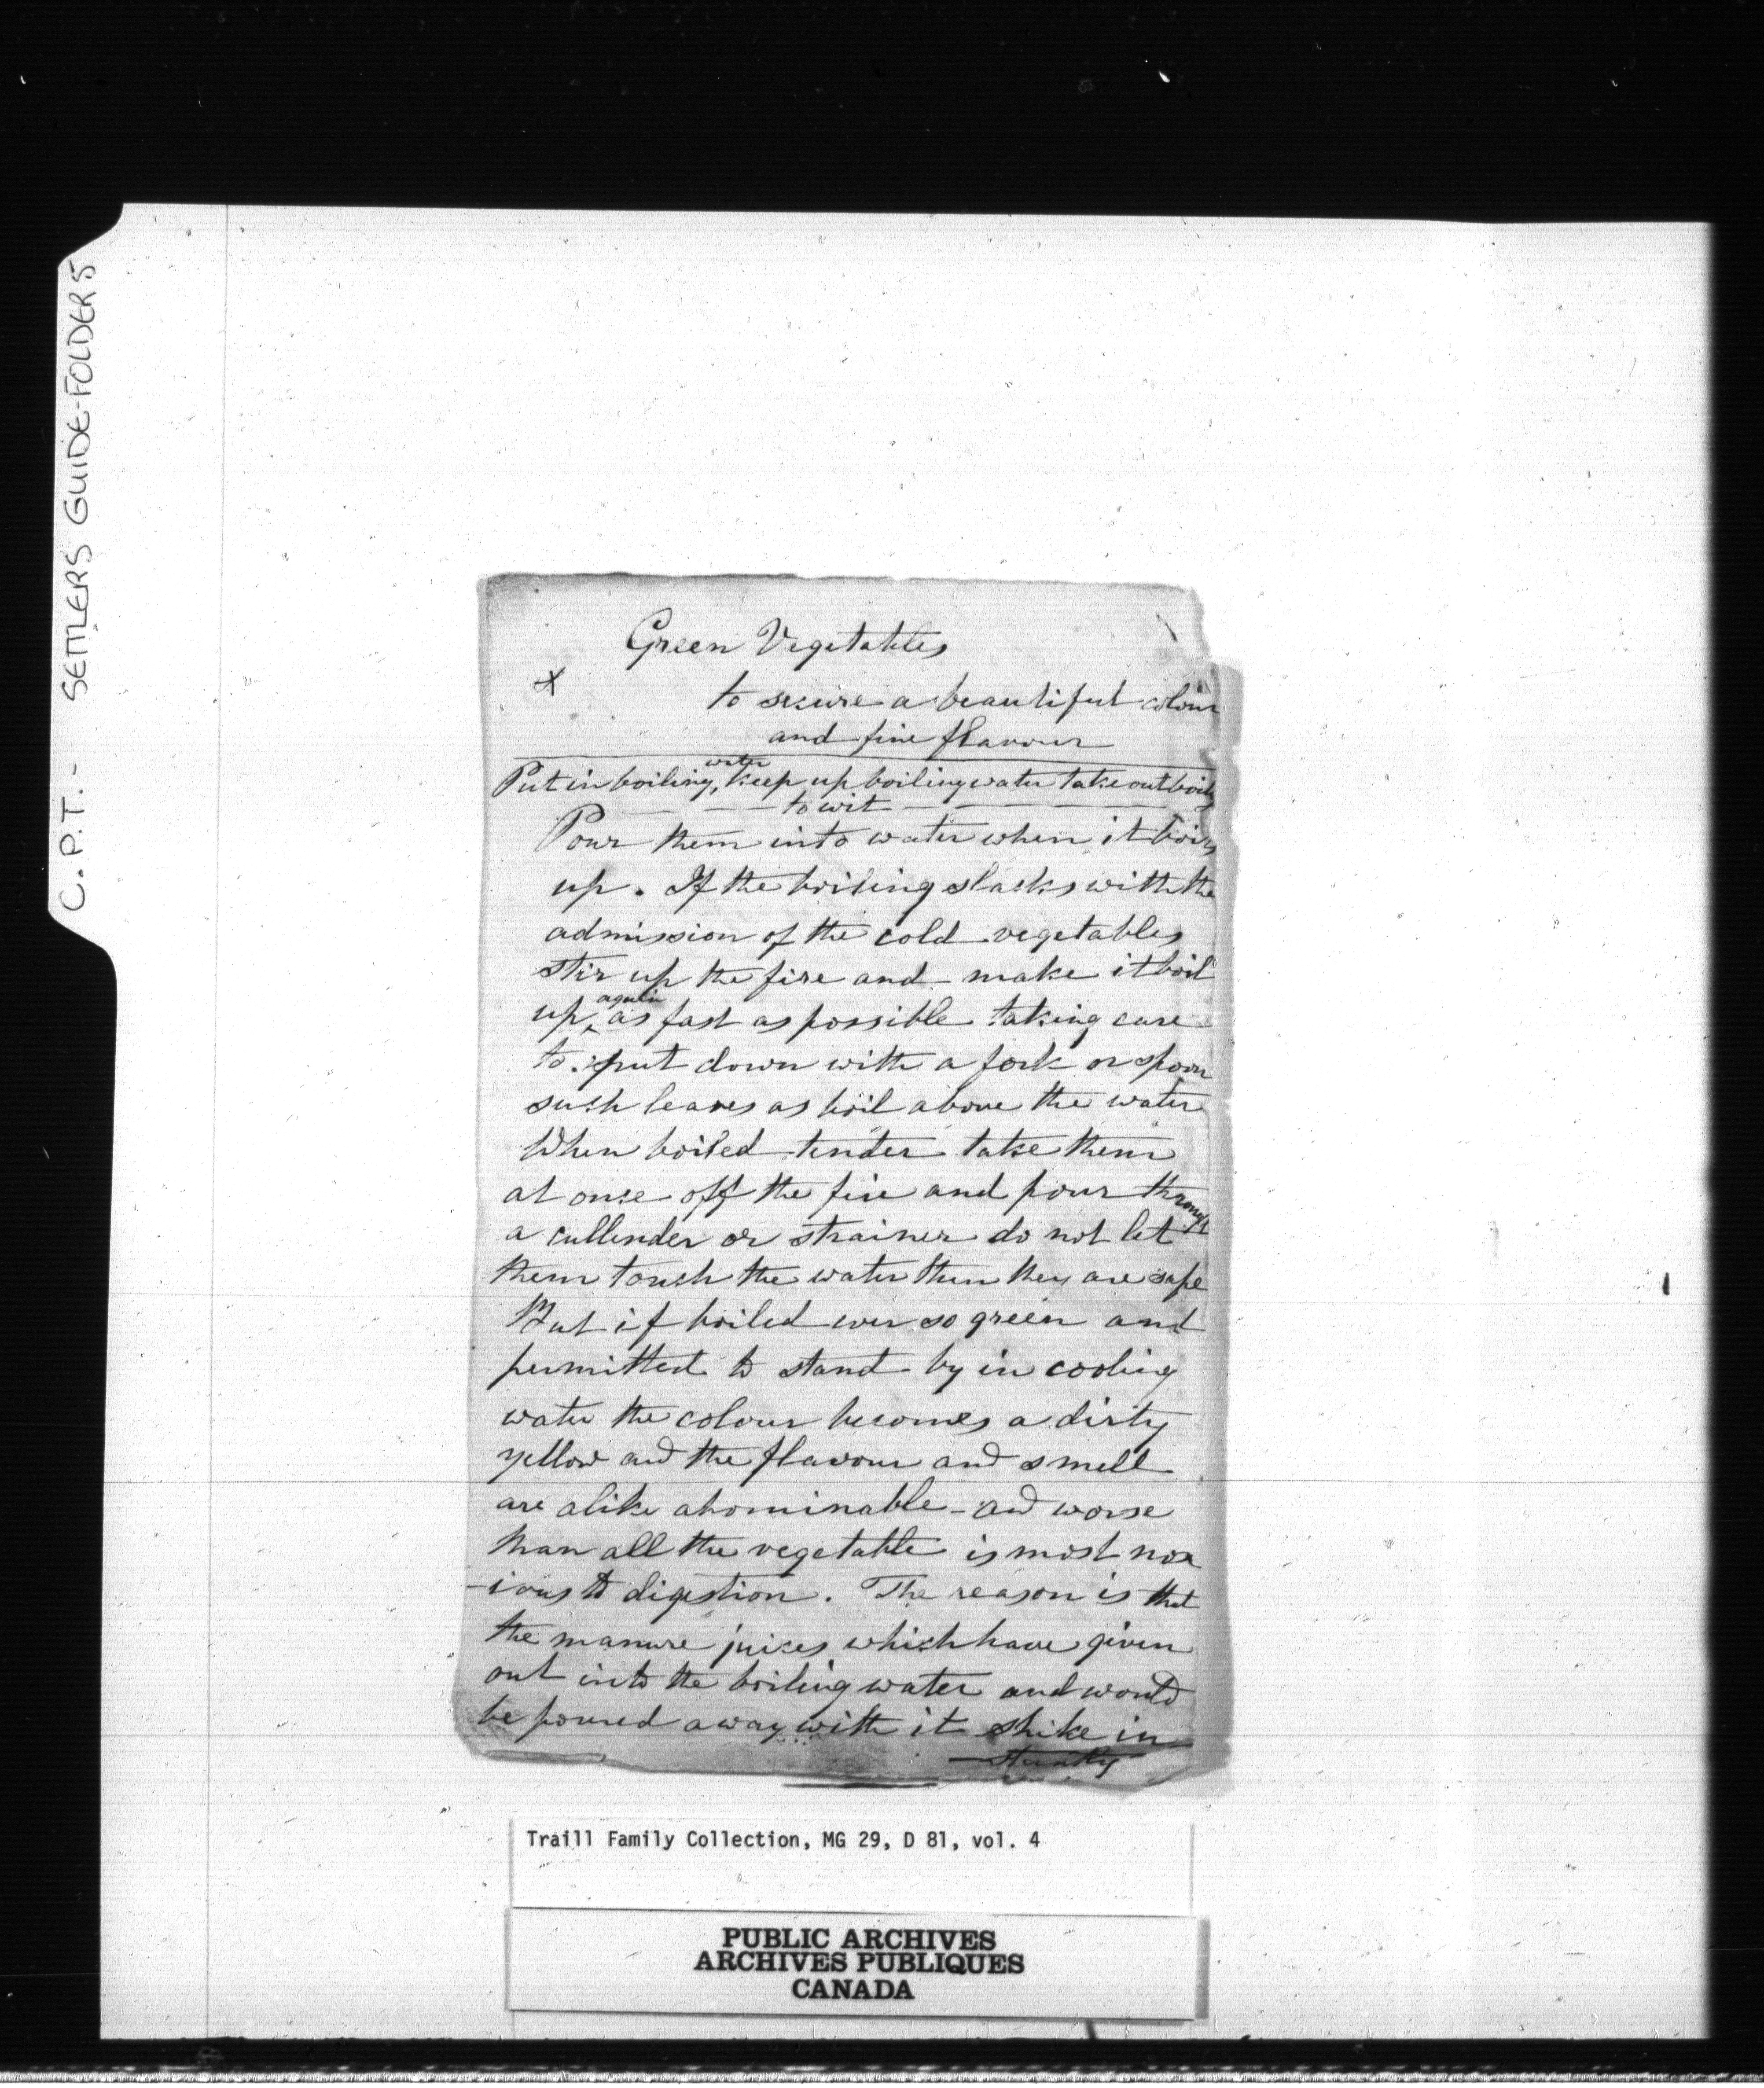 C.P.T. - SETTLERS GUIDE-FOLDER 5
Green Vegetables
x
to secure a beautiful colour
and fine flavour
water
Put in boiling, keep up boiling water take out boiling
to wit
Pour them into water when it boils
up. If the boiling slacks with the
admission of the cold vegetables
stir up the fire and make it boil
again
up ^ as fast as possible taking care
to put down with a fork or spoon
such leaves as boil above the water
When boiled tender take them
at once off the fire and pour through
a cullender or strainer do not let
them touch the water then they are safe
But if boiled ever so green and
permitted to stand by in cooling
water the colour becomes a dirty
yellow and the flavour and smell
are alike abominable - and worse
than all the vegetable is most nox
-ious to digestion. The reason is that
the manure juices which have given
out into the boiling water and would
be poured away with it strike in
Traill Family Collection, MG 29, D 81, vol. 4
PUBLIC ARCHIVES
ARCHIVES PUBLIQUES
CANADA